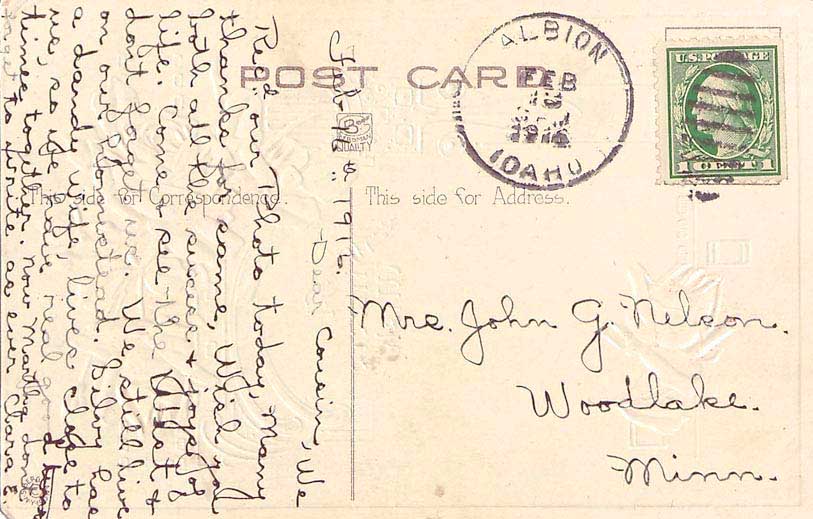 POST CARD
ALBION
FEB
1916
IDAHO
U.S. POSTAGE
1 CENT 1
This side for Correspondence.
This side for Address.
Mrs. John G. Nelson.
Woodlake.
Minn.
Feb 18" 1916.
Dear Cousin, We
Rec'd our Photo today, Many
thanks for same, Wish you
both all the success & joys of
life. Come & see the West &
don't forget us. We still live
on our Homestead. Silvy has
a dandy wife, lives close to
us, so we have real good
times together. now Martha don't
forget to write as ever Clara E.